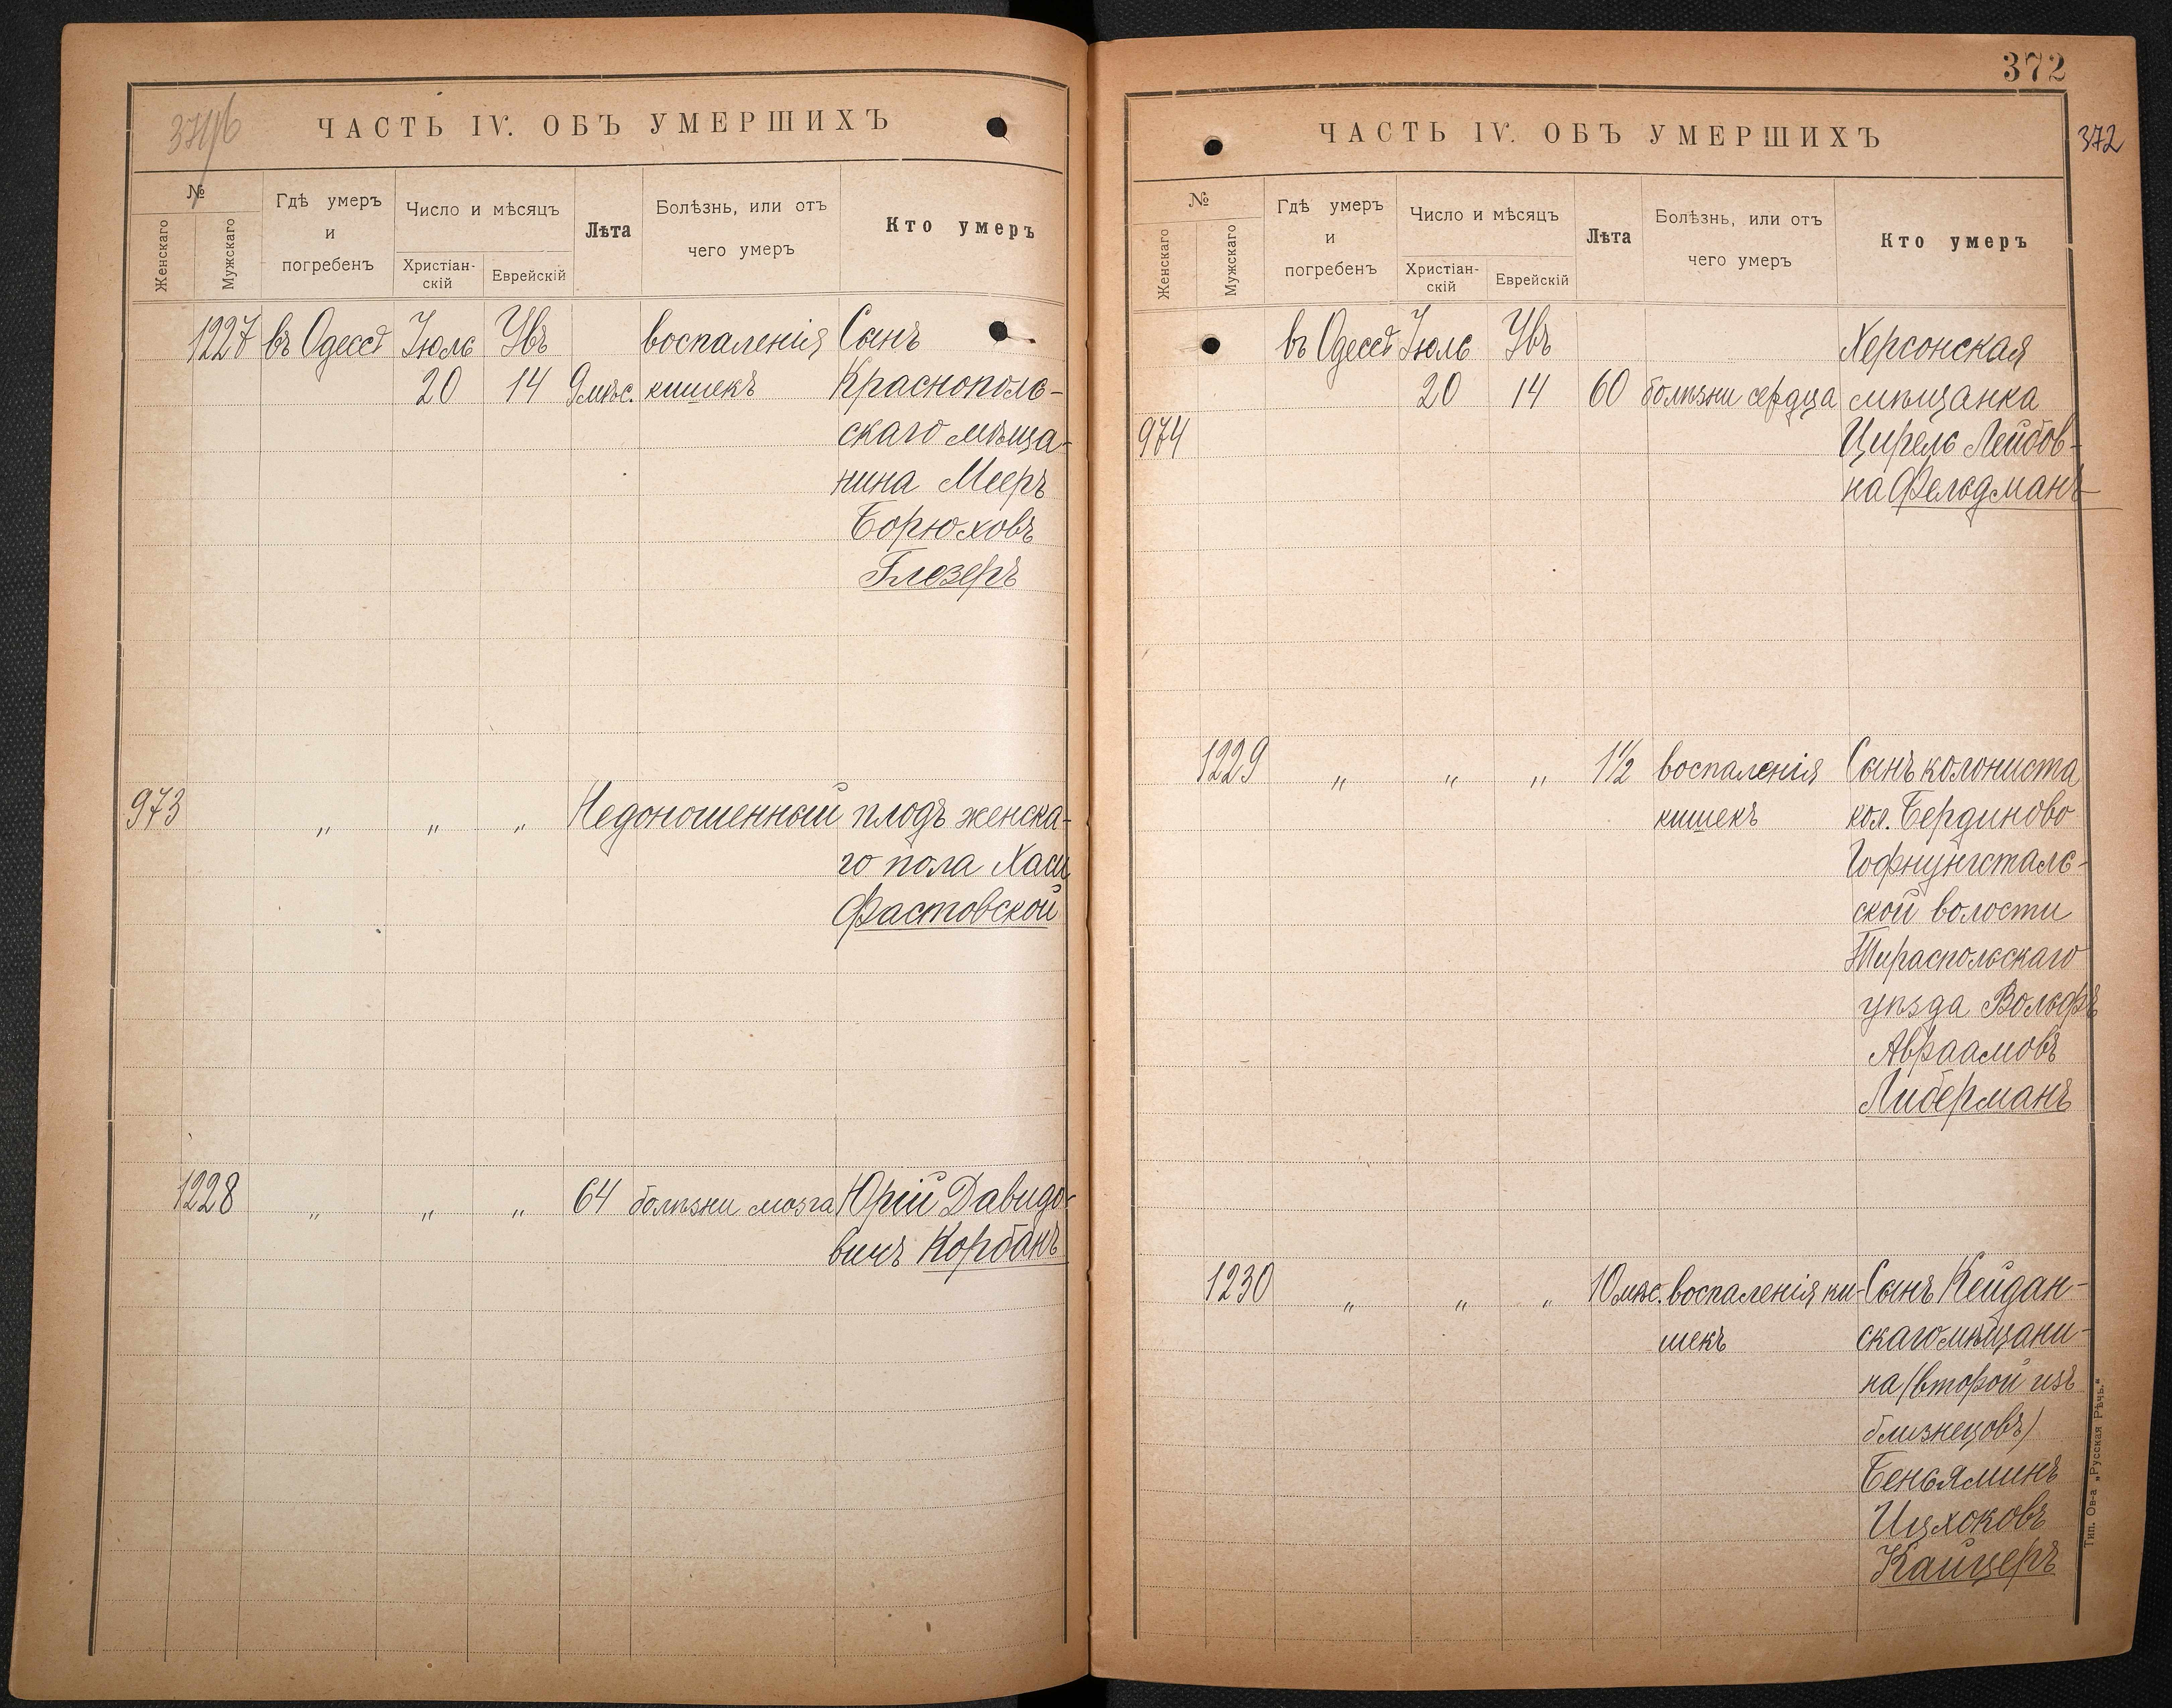 ЧАСТЬ IV. ОБЪ УМЕРШИХЪ
№
Женскаго
Мужскаго
Гдѣ умеръ
и
погребенъ
Число и мѣсяцъ
Христіан-
скій
Еврейскій
Лѣта
Болѣзнь, или отъ
чего умеръ
Кто умеръ
1227 въ Одессѣ Іюль Увъ воспаленія Сынъ
20 14 9 мѣс. кишекъ Краснополь-
скаго мѣща-
нина Мееръ
Борюховъ
Глезеръ
973 „ „ „ Недоношенный плодъ женска-
го пола Хаси
Фастовской
1228 „ „ „ 64 болѣзни мозга Юрій Давидо-
вичъ Корбанъ
372
ЧАСТЬ IV. ОБЪ УМЕРШИХЪ
372
№
Женскаго
Мужскаго
Гдѣ умеръ
и
погребенъ
Число и мѣсяцъ
Христіан-
скій
Еврейскій
Лѣта
Болѣзнь, или отъ
чего умеръ
Кто умеръ
въ Одессѣ Іюль Увъ Херсонская
20 14 60 болѣзни сердца мѣщанка
974 Цирель Лейбов-
на Фельдманъ
1229 „ „ „ 1½ воспаленія Сынъ колониста
кишекъ кол. Бердиново
Гофнунгсталь-
ской волости
Тираспольскаго
уѣзда Вольфъ
Авраамовъ
Либерманъ
1230 „ „ „ 10 мѣс. воспаленія ки- Сынъ Кейдан-
шекъ скаго мѣщани-
на (второй изъ
близнецовъ)
Беньяминъ
Ицхоковъ
Кайцеръ
Тип. Ов-а „Русская Рѣчь.“